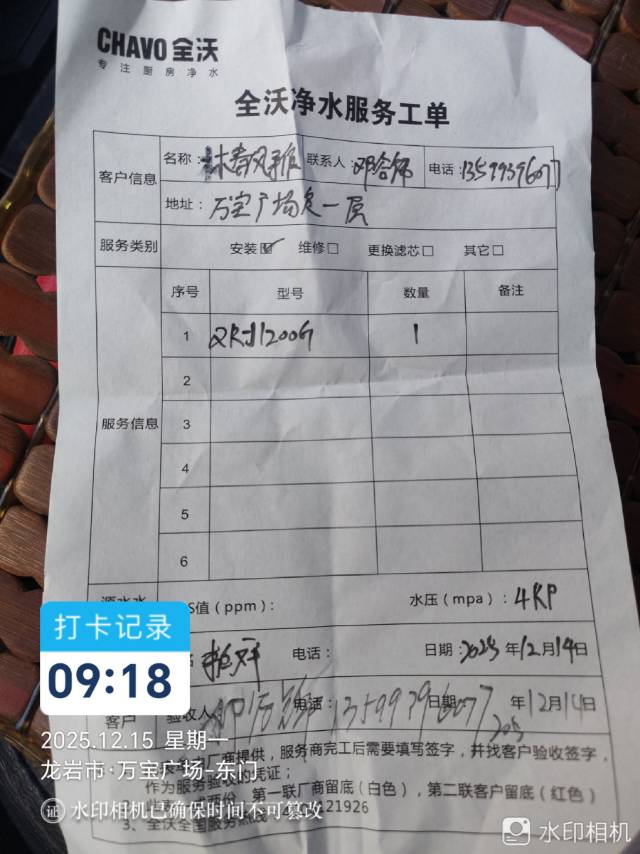 CHAVO 全沃
专注厨房净水
全沃净水服务工单
客户信息 名称： 联系人： 电话：13599396077
地址：万宝广场负一层
服务类别 安装☑ 维修□ 更换滤芯□ 其它□
服务信息 序号 型号 数量 备注
1 1200G 1
2
3
4
5
6
S值（ppm）： 水压（mpa）：4KP
电话： 日期：2025年12月14日
客户 验收人 电话：13599396077 日期 年12月14日
商提供，服务商完工后需要填写签字，并找客户验收签字，
作为服务验收的凭证；
第一联厂商留底（白色），第二联客户留底（红色）
3、全沃全国服务热线 121926
打卡记录
09:18
2025.12.15 星期一
龙岩市·万宝广场-东门
证 水印相机已确保时间不可篡改
水印相机